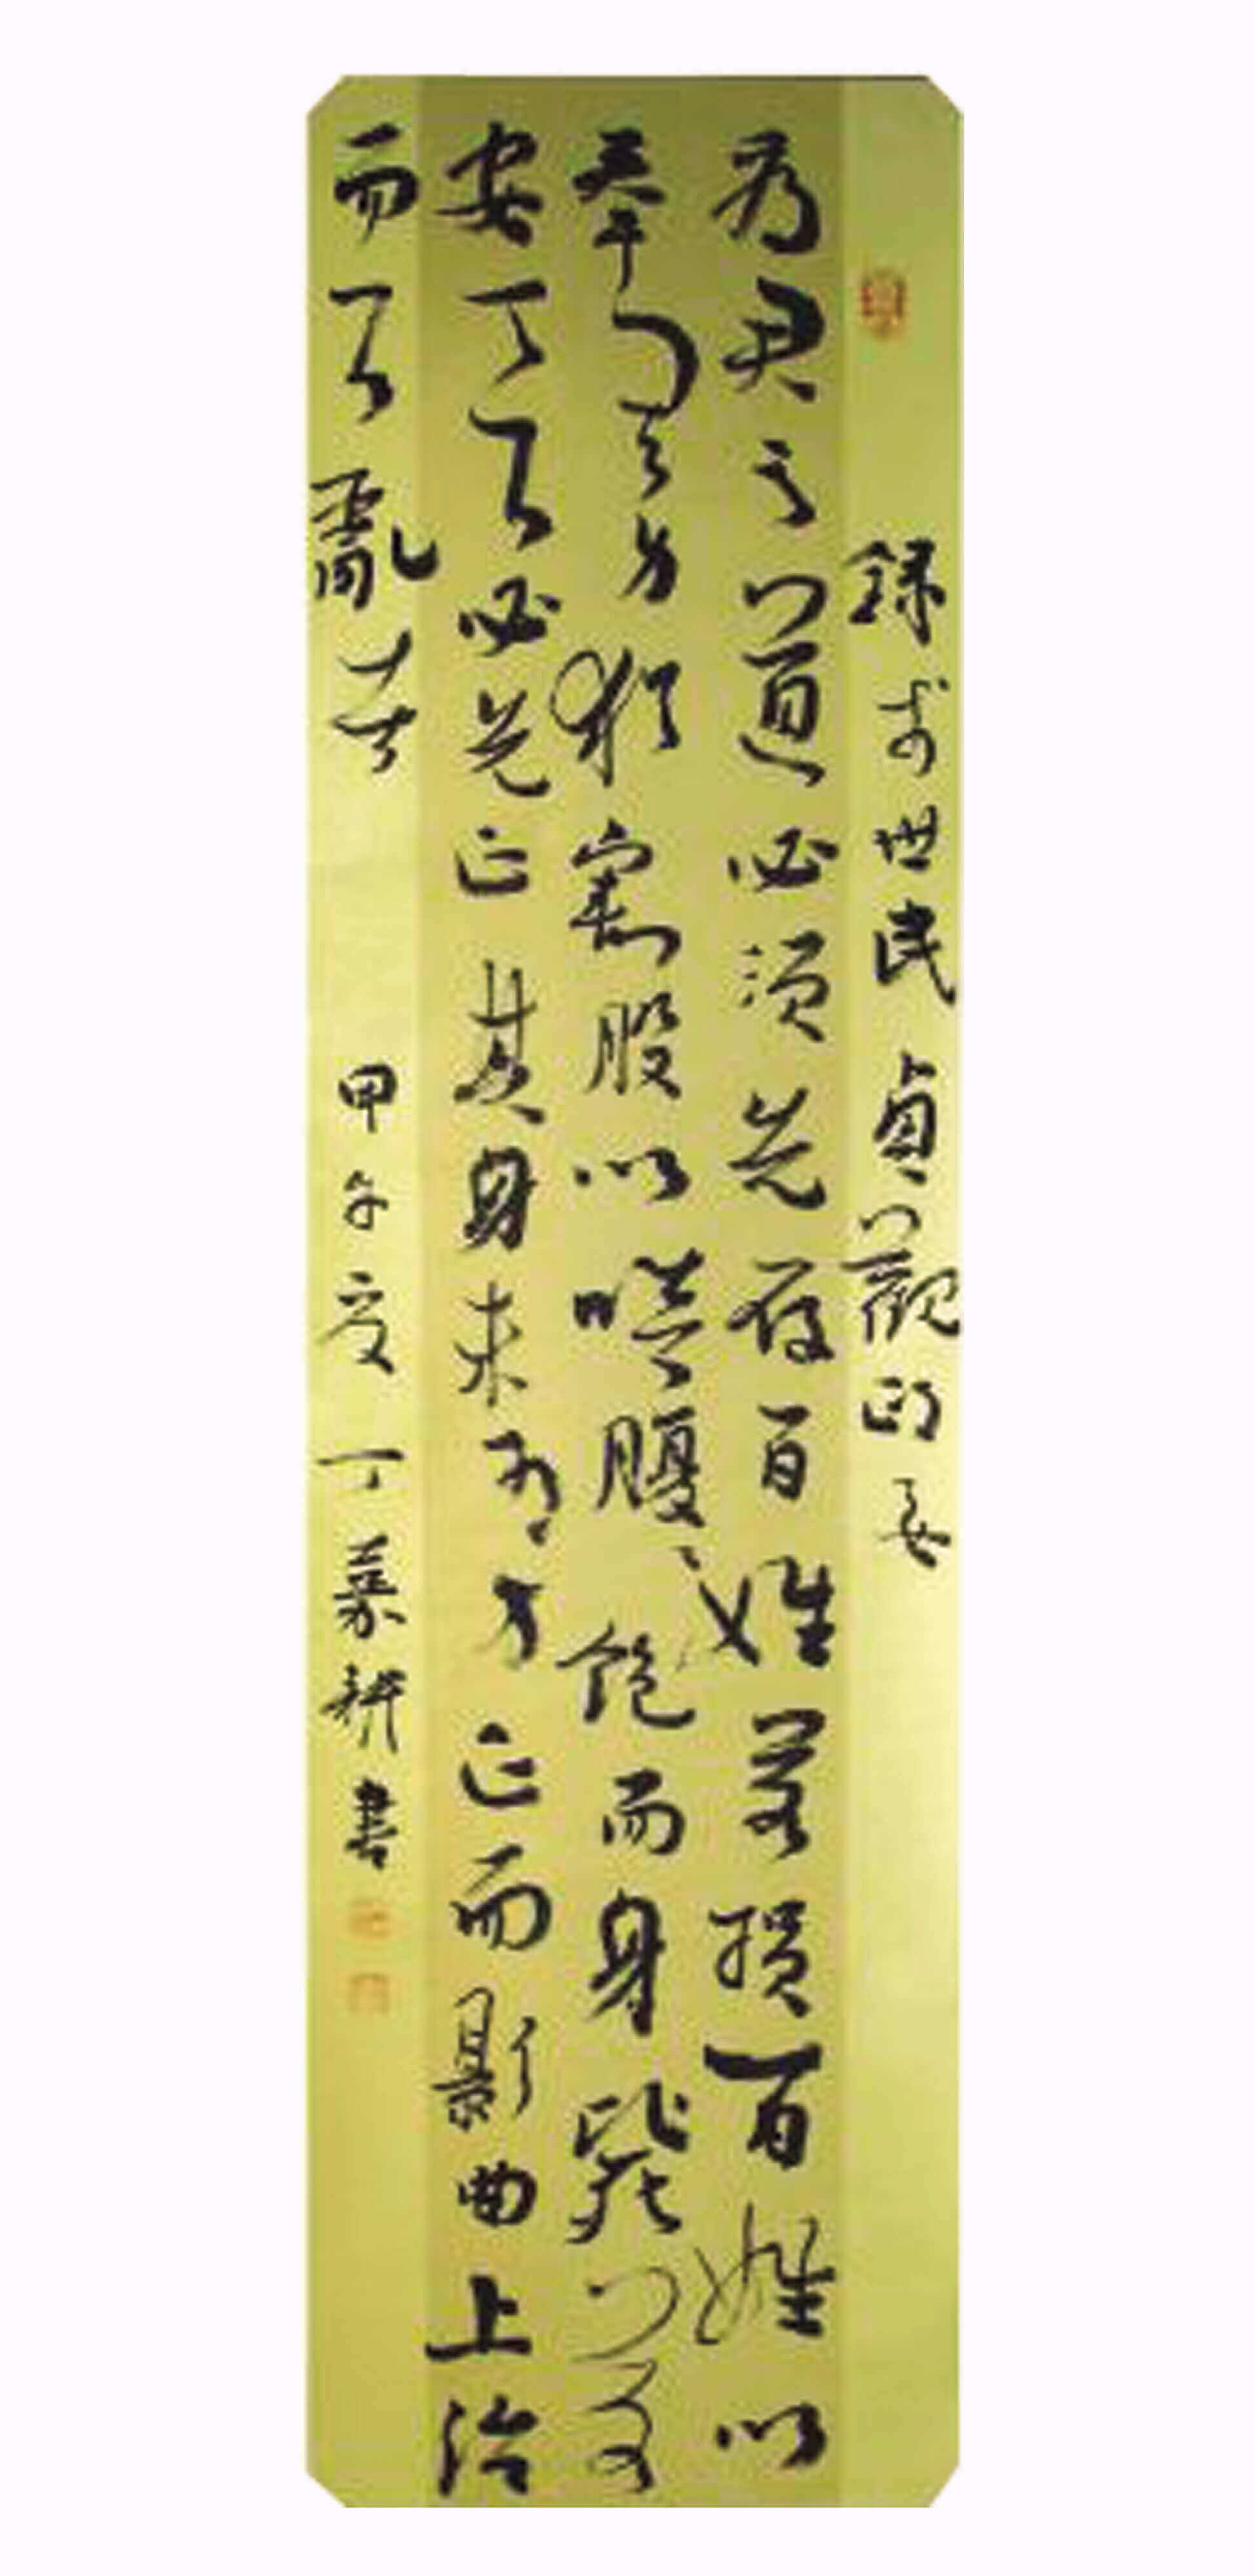 錄李世民貞觀政要
為君之道必須先存百姓若損百姓以
奉其身猶割股以啖腹々飽而身斃若
安天下必先正其身未有身正而影曲上治
而下亂者 甲午夏 丁嘉耕書